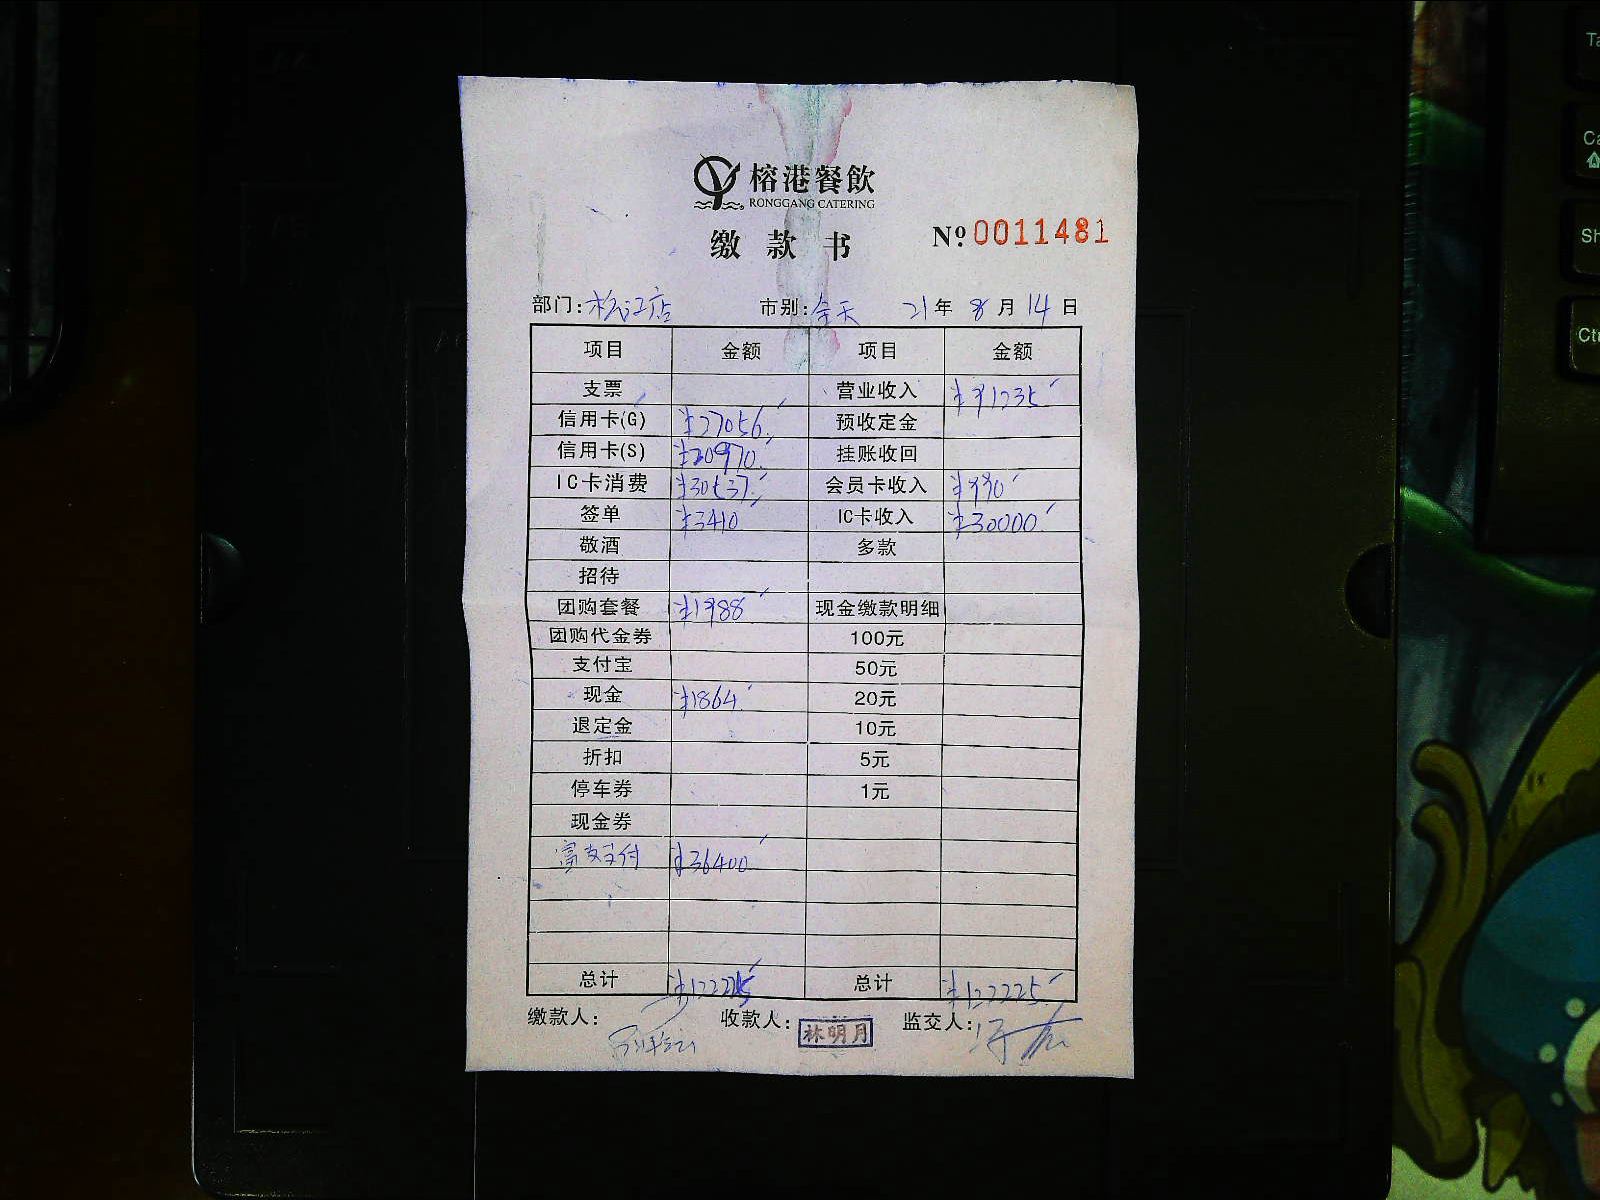 榕港餐飲
RONGGANG CATERING
缴款书
№ 0011481
部门:松江店 市别:全天 21年 8月 14日
项目 金额 项目 金额
支票 营业收入 ¥91235
信用卡(G) ¥27056 预收定金
信用卡(S) ¥20970 挂账收回
IC卡消费 ¥30537 会员卡收入 ¥990
签单 ¥3410 IC卡收入 ¥30000
敬酒 多款
招待
团购套餐 ¥1988 现金缴款明细
团购代金券 100元
支付宝 50元
现金 ¥1864 20元
退定金 10元
折扣 5元
停车券 1元
现金券
富友支付 ¥36400
总计 ¥122225 总计 ¥122225
缴款人: 收款人:林明月 监交人: